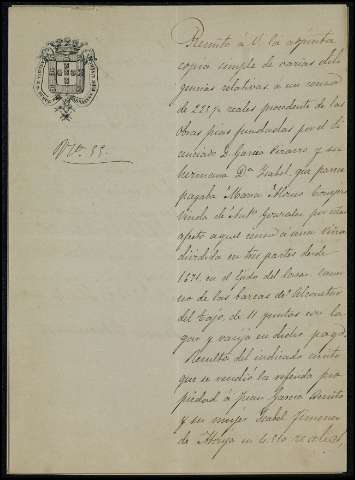 Remito á V. la adjunta
copia simple de varias dili
gencias relativas a un censo
de 225 reales procedente de las
obras pias fundadas por el li
cenciado D. Garcia Pizarro y su
hermana Dª Isabel, que parece
pagaba Maria Alonso
viuda de Antº Gonzalez por estar
afecto aquel censo á una viña
dividida en tres partes desde
1671, en el lado del Casar cami
no de las barcas de Alconetar
del Tajo, de 11 yuntas con la
gar y vasija en dicho pago.
Resulta del indicado escrito
que se vendió la referida pro
piedad á Juan Garcia Benito
y su mujer Isabel Jimenez
de Abrijo en 6.
Nº 55.